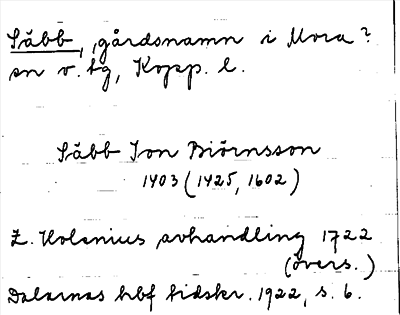 Säbb, gårdsnamn i Mora?
sn o. tg, Kopp. l.
Säbb Jon Biörnsson
1403 (1425, 1602)
E. Holenius avhandling 1722
(övers.)
Dalarnas hbf tidskr. 1922, s. 6.